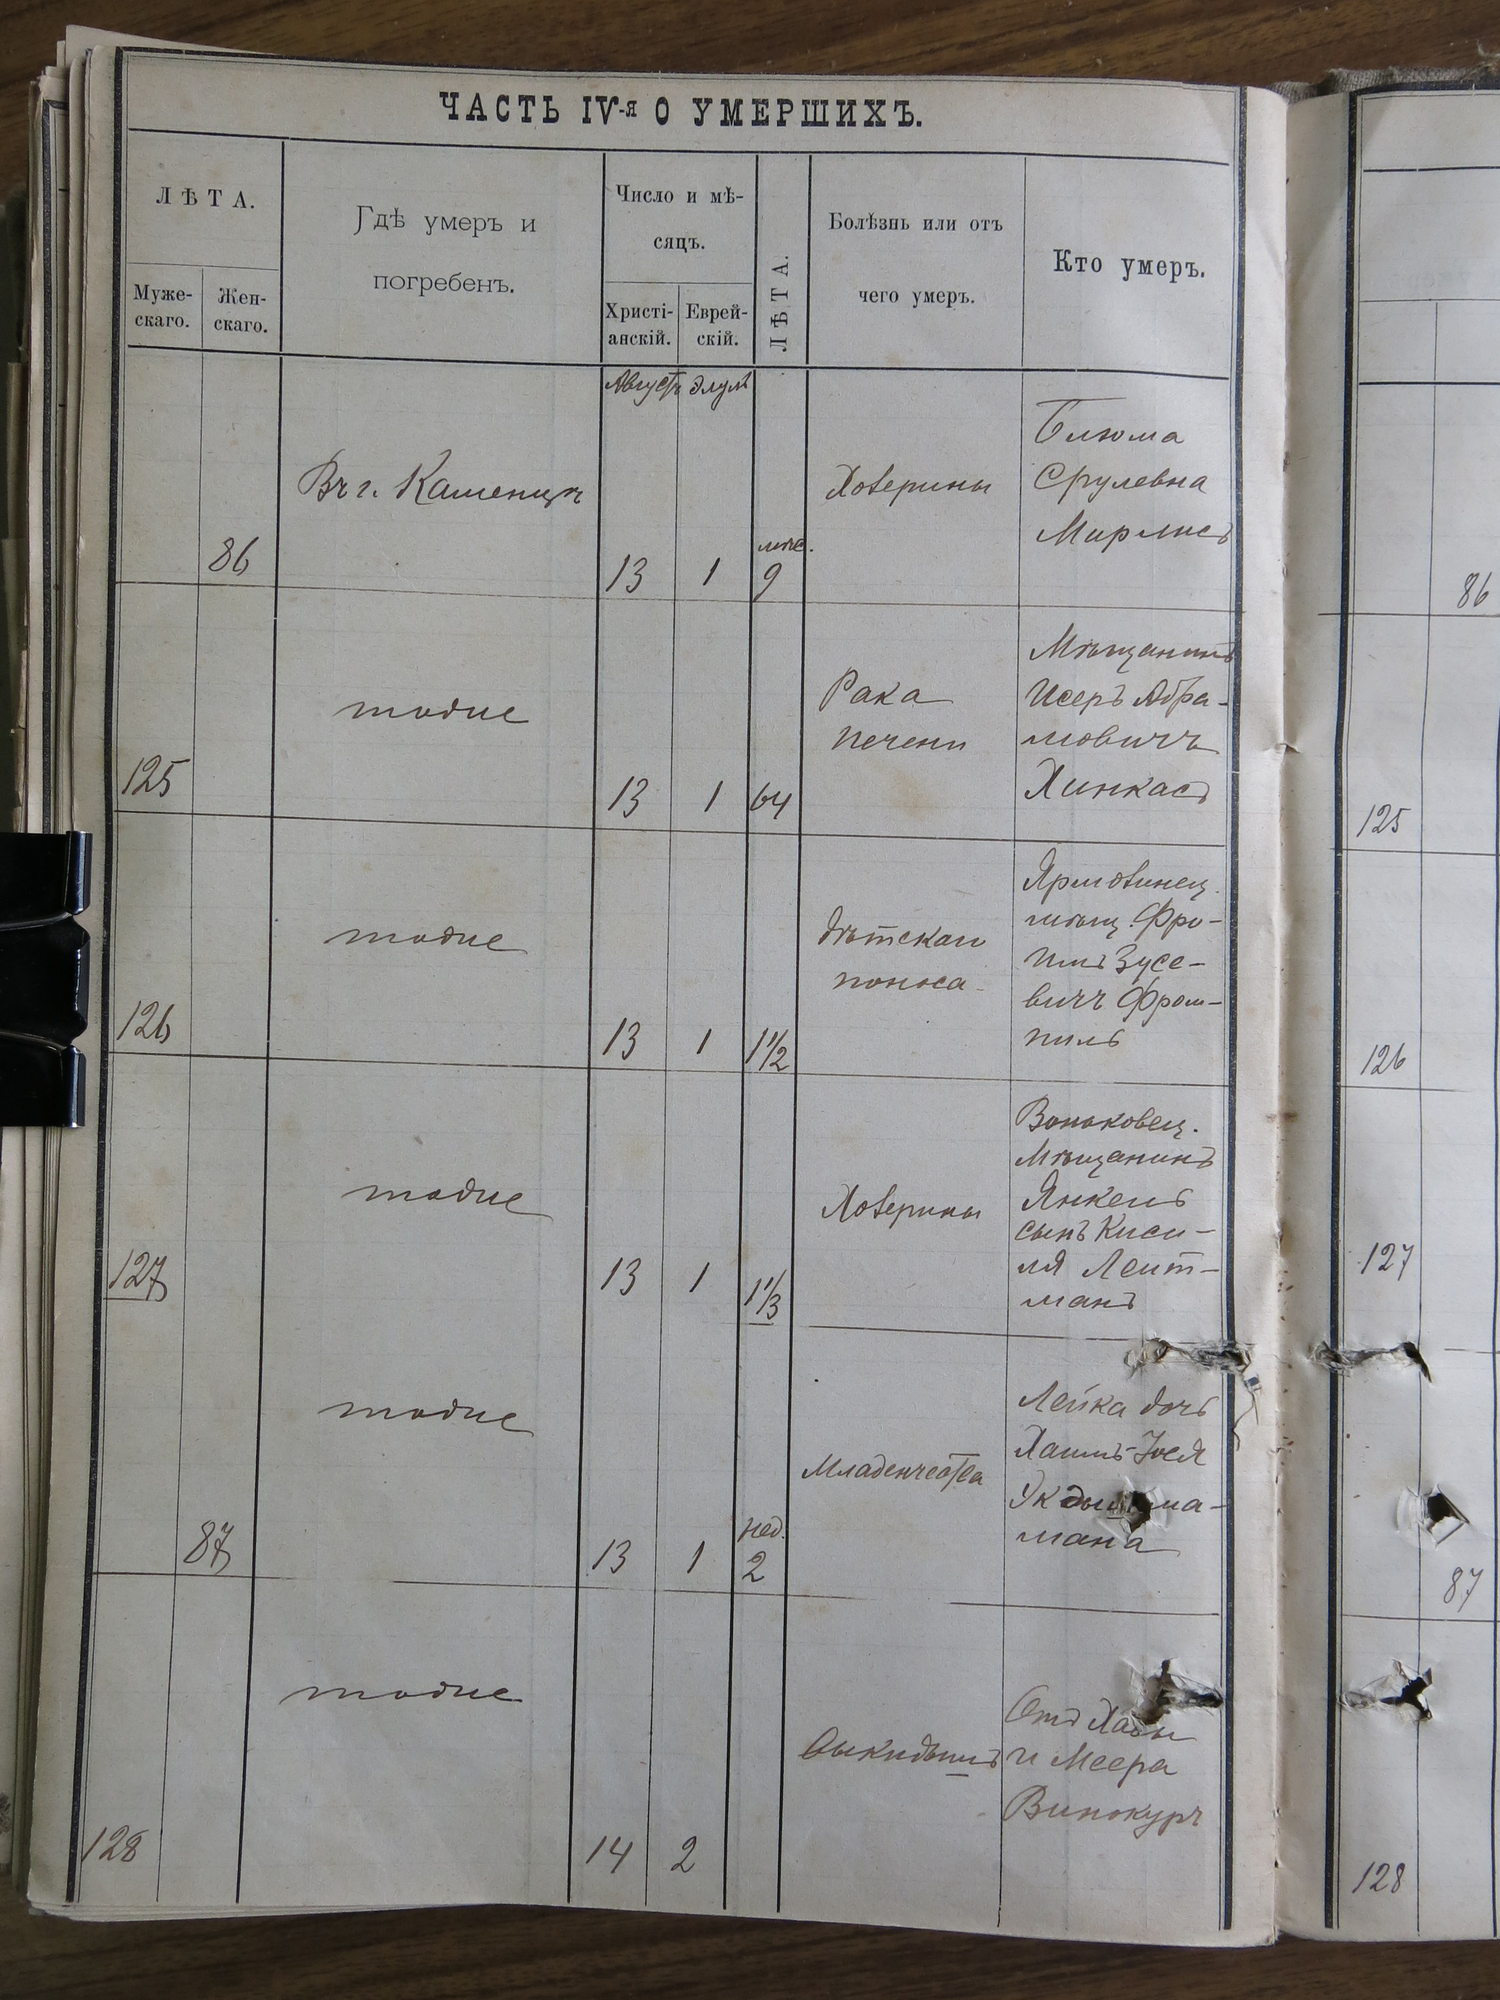 ЧАСТЬ IV-я О УМЕРШИХЪ.
ЛѢТА.
Мужескаго.
Женскаго.
Гдѣ умеръ и
погребенъ.
Число и мѣсяцъ.
Христіанскій.
Еврейскій.
ЛѢТА.
Болѣзнь или отъ
чего умеръ.
Кто умеръ.
Августъ Элулъ
86
Въ г. Каменцѣ
13
1
мѣс.
9
Холерины
Блюма
Срулевна
Мирлисъ
86
125
тоже
13
1
64
Рака
печени
Мѣщанинъ
Исеръ Абра-
мовичъ
Хинкасъ
125
126
тоже
13
1
1 1/2
дѣтскаго
поноса
Ярмолинец.
мѣщ. Фро-
имъ Зусе-
вичъ Фром-
пиль
126
127
тоже
13
1
1 1/3
Холерины
Воньковец.
Мѣщанинъ
Янкель
сынъ Киси-
ля Лейт-
манъ
127
87
тоже
13
1
нед.
2
Младенчества
Лейка дочь
Хаимъ-Іося
мана
87
128
тоже
14
2
Выкидышъ
Отъ Хавы
и Меера
Винокуръ
128